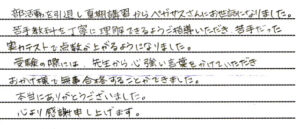 部活動を引退し夏期講習からペガサスさんにお世話になりました。
苦手教科を丁寧に理解できるようご指導いただき 苦手だった
実力テストで点数が上がるようになりました。
受験の際には、先生から心強い言葉をかけていただき
おかげ様で無事合格することができました。
本当にありがとうございました。
心より感謝申し上げます。